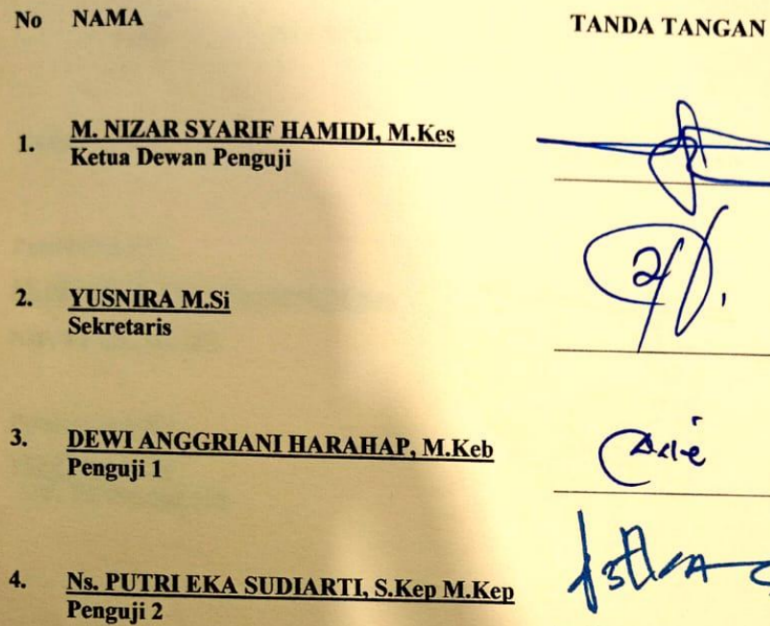 No NAMA TANDA TANGAN
1. M. NIZAR SYARIF HAMIDI, M.Kes
Ketua Dewan Penguji
2. YUSNIRA M.Si
Sekretaris
3. DEWI ANGGRIANI HARAHAP, M.Keb
Penguji 1
4. Ns. PUTRI EKA SUDIARTI, S.Kep M.Kep
Penguji 2